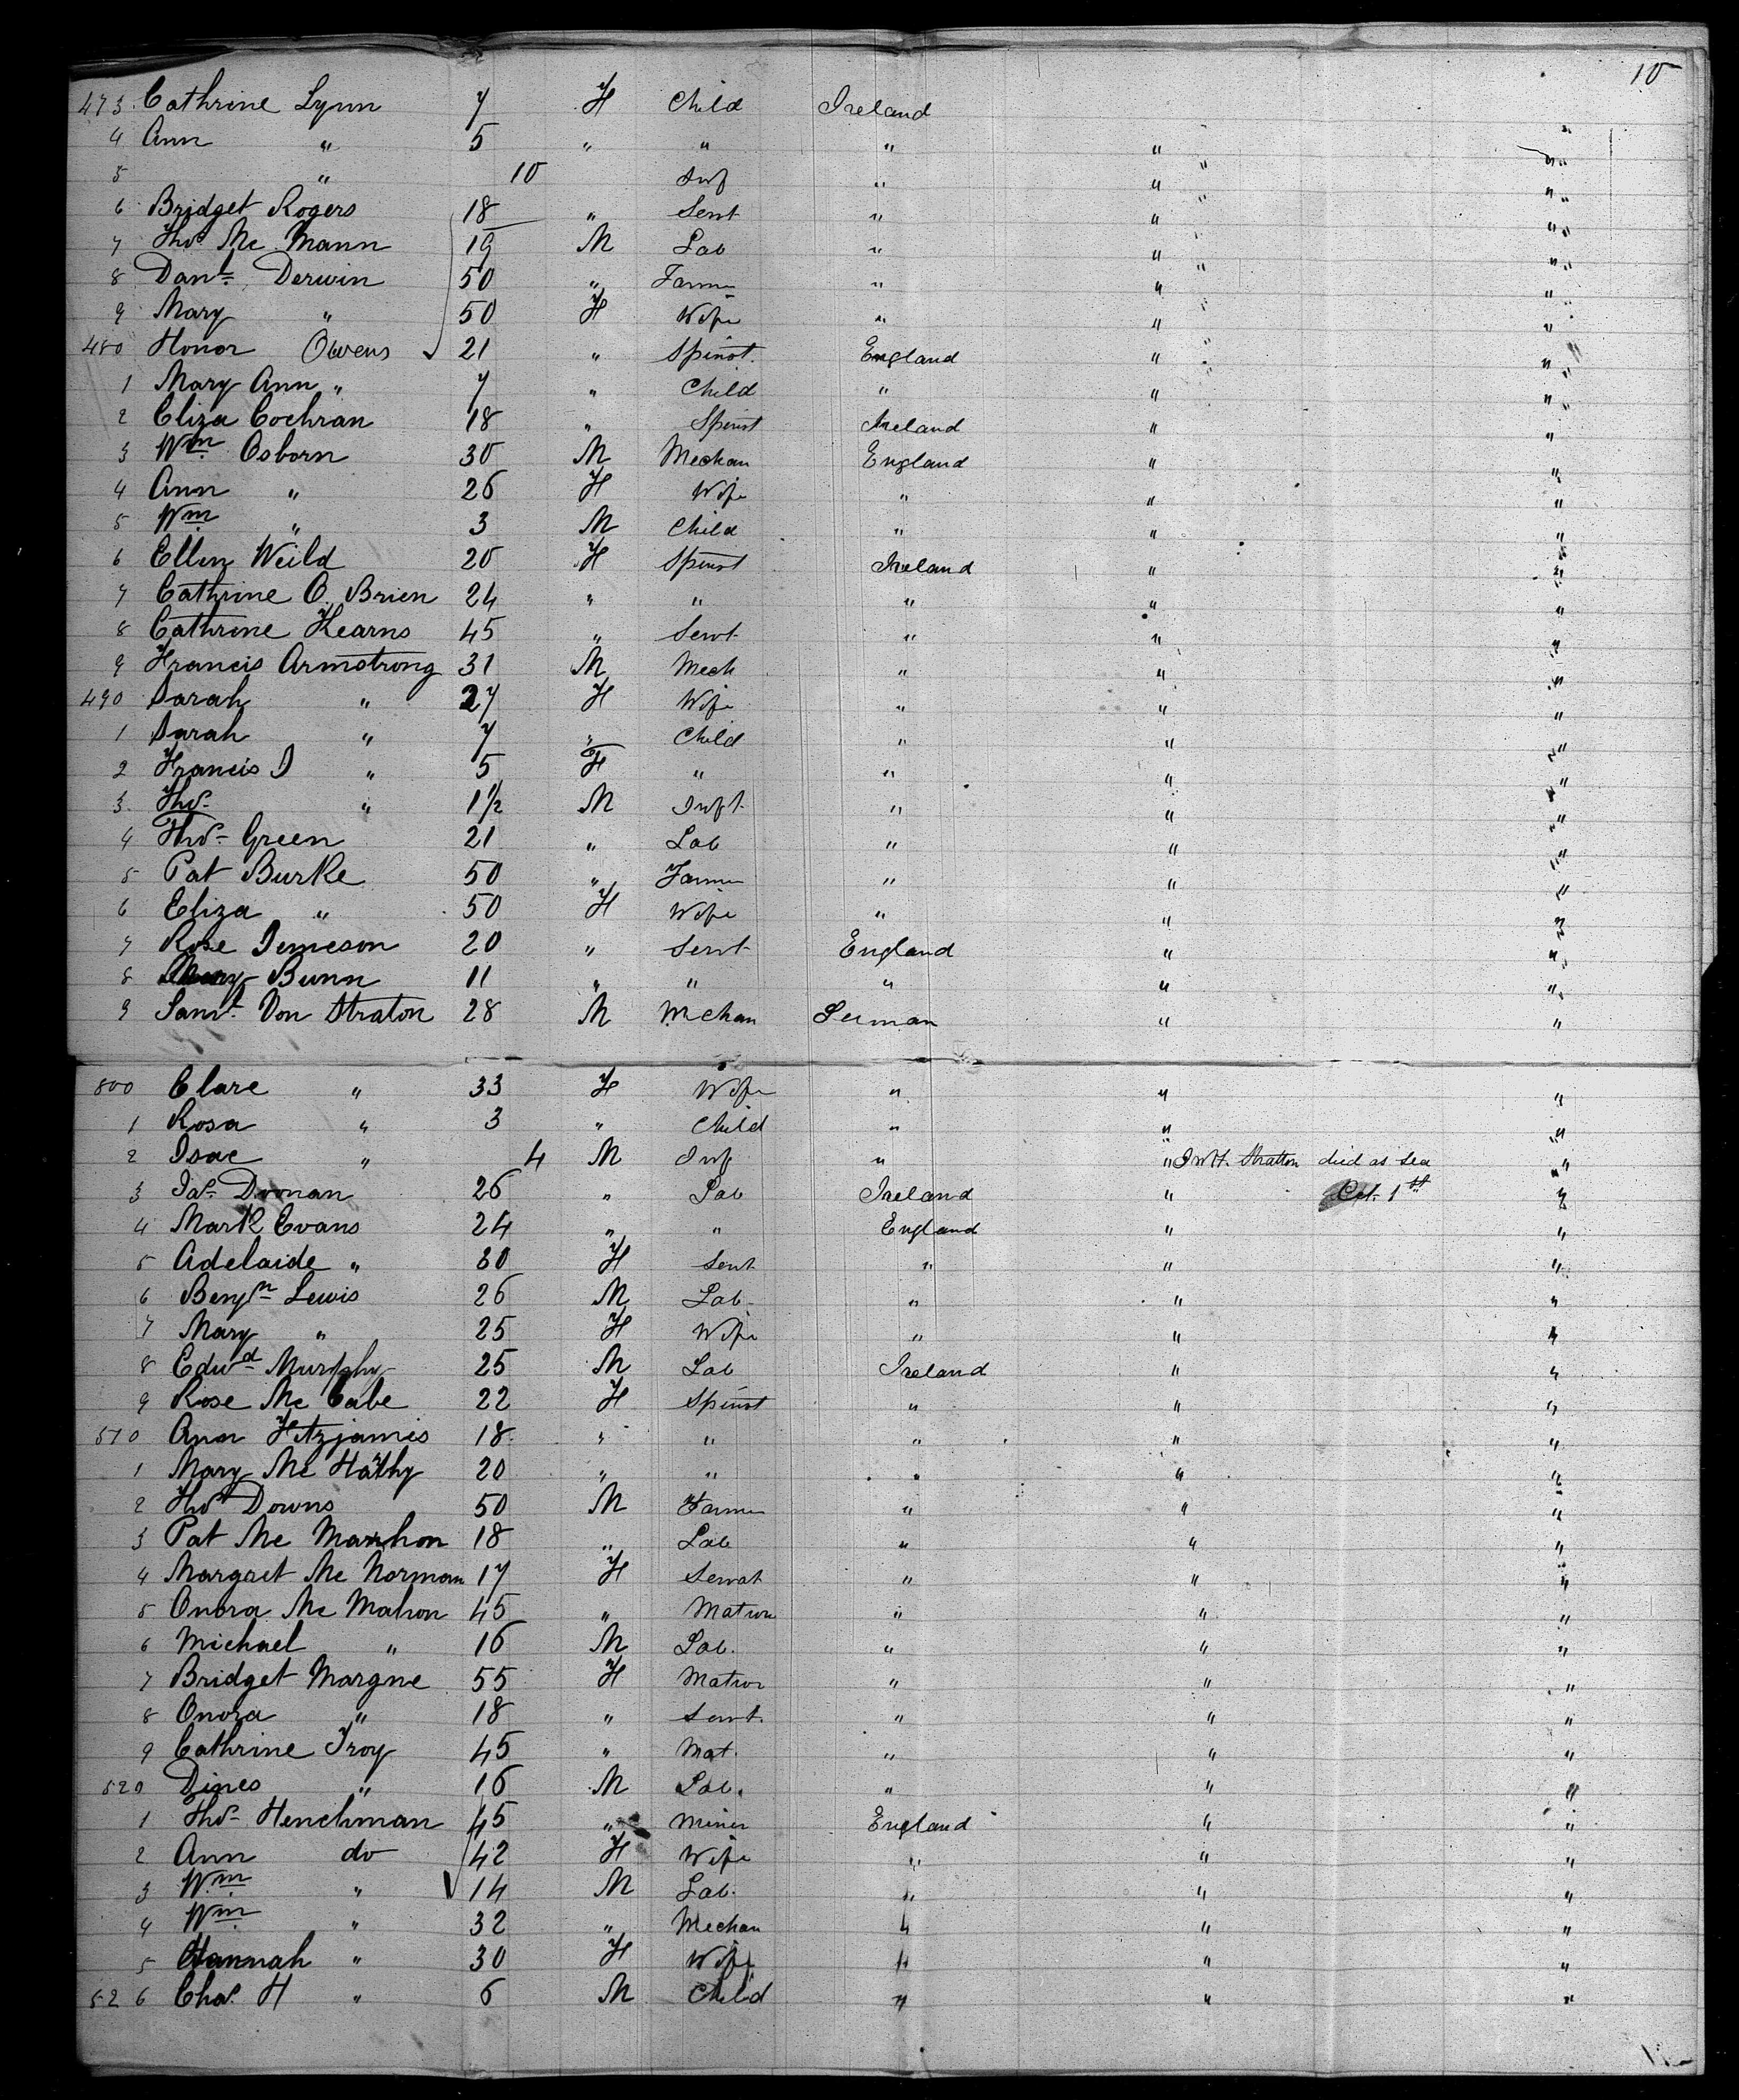 10
473 Cathrine Lynn 7 F Child Ireland
4 Ann " 5 " " " " "
5 " 10 Inf " " "
6 Bridget Rogers 18 " Servt " " "
7 Thos Mc Mann 19 M Lab " " "
8 Danl Derwin 50 " Farmer " " "
9 Mary " 50 F Wife " " "
480 Honor Owens 21 " Spinst. England " "
1 Mary Ann " 7 " Child " " "
2 Eliza Cochran 18 " Spinst Ireland " "
3 Wm Osborn 30 M Mechan England " "
4 Ann " 26 F Wife " " "
5 Wm " 3 M Child " " "
6 Ellen Weild 20 F Spinst Ireland " "
7 Cathrine O Brien 24 " " " " "
8 Cathrine Kearns 45 " Servt " " "
9 Francis Armstrong 31 M Mech " " "
490 Sarah " 27 F Wife " " "
1 Sarah " 7 " Child " " "
2 Francis D " 5 F " " " "
3 Thos " 1 1/2 M Inft " " "
4 Thos Green 21 " Lab " " "
5 Pat Burke 50 " Farmer " " "
6 Eliza " 50 F Wife " " "
7 Rose Jemeson 20 " Servt England " "
8 Mary Bunn 11 " " " " "
9 Saml Von Straton 28 M Mchan German " "
500 Clare " 33 F Wife " " "
1 Rosa " 3 " Child " " "
2 Isac " 4 M Inf " " Inft. Stratton died as sea "
3 Jas Doonan 26 " Lab Ireland " Oct 1st "
4 Mark Evans 24 " " England " "
5 Adelaide " 30 F Servt " " "
6 Benjn Lewis 26 M Lab " " "
7 Mary " 25 F Wife " " "
8 Edwd Murphy 25 M Lab Ireland " "
9 Rose Mc Cabe 22 F Spinst " " "
510 Ann Fitzjames 18 " " " " "
1 Mary Mc Hathy 20 " " " " "
2 Thos Downs 50 M Farmer " " "
3 Pat Mc Marhon 18 " Lab " " "
4 Margret Mc Norman 17 F Servat " " "
5 Onora Mc Mahon 45 " Matron " " "
6 Michael " 16 M Lab. " " "
7 Bridget Margne 55 F Matron " " "
8 Onora " 18 " Servt. " " "
9 Cathrine Troy 45 " Mat. " " "
520 Dines " 16 M Lab. " " "
1 Thos Henchman 45 " Miner England " "
2 Ann do 42 F Wife " " "
3 Wm " 14 M Lab. " " "
4 Wm " 32 " Mechan " " "
5 Hannah " 30 F Wife " " "
526 Chas. H " 6 M Child " " "